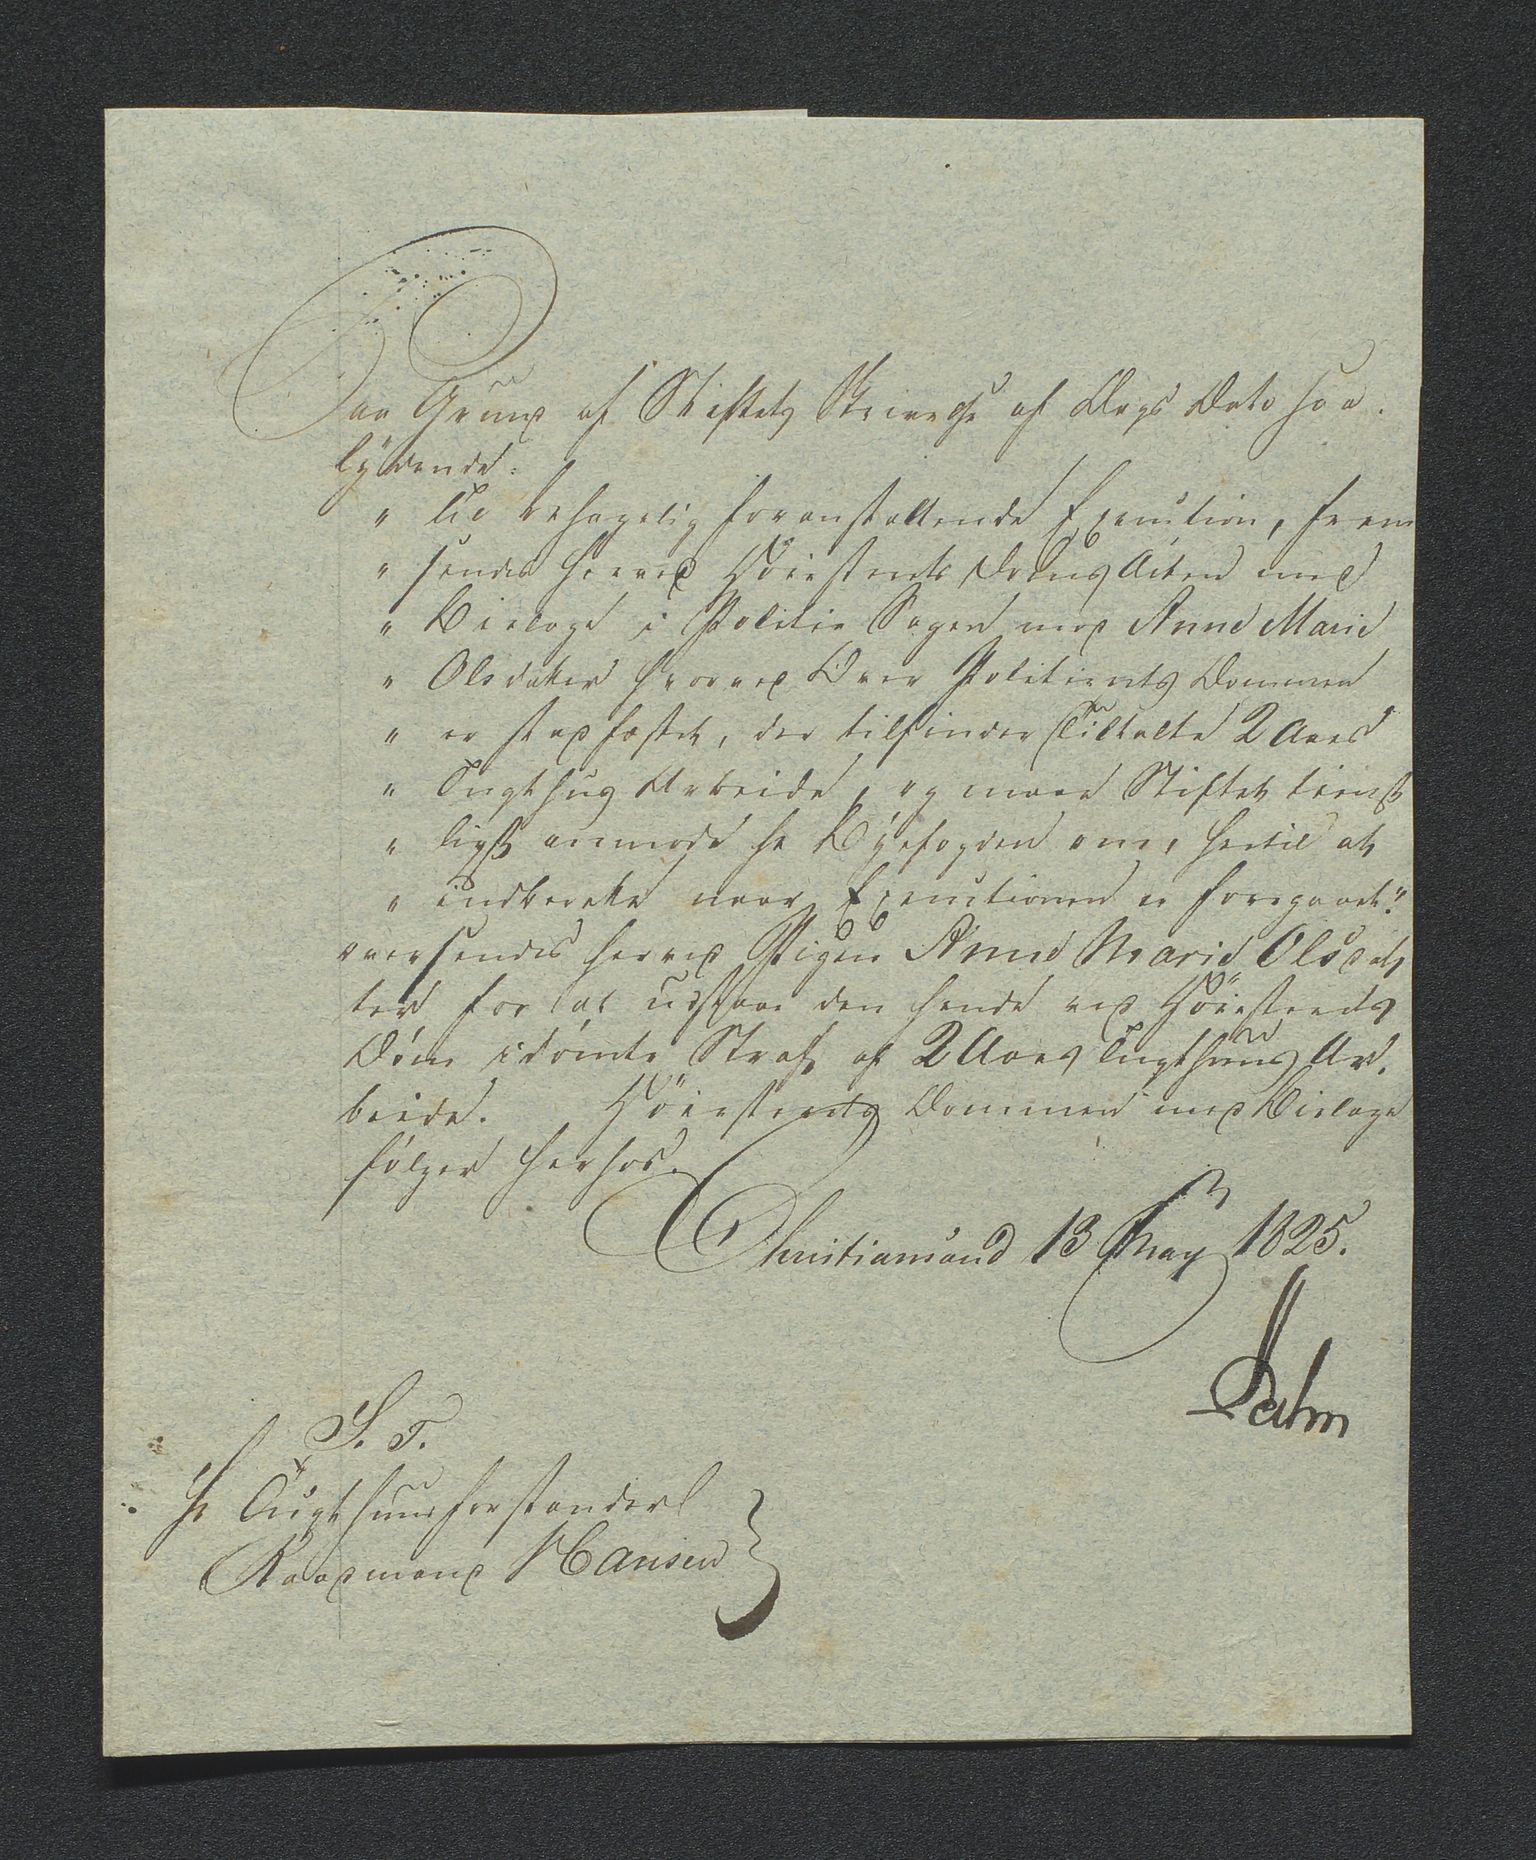 Paa Grund af Stiftets Skrivelse af Dags Dato saa
lydende:
" Til behagelig foranstaltende Execution, frem
" sendes herved Høiesterets Doms Acten med
" Bielage i Politie Sagen mod Anne Marie
" Olsdatter hvorved Over Politirets Dommen
" er stadfæstet, der tilfinder Tiltalte 2 Aars
" Tugthus Arbeide, og maae Stiftet tienst
" ligst anmode Hr Byefogden om, hertil at
" indberette naar Executionen er foregaaet."
oversendes herved Pigen Anne Marie Olsdat
ter for at udstaae den hende ved Høiesterets
Dom idømte Straf af 2 Aars Tugthuus Ar-
beide. Høiesterets Dommen med Bielage
følger herhos.
Christiansand 13 May 1825.
Dahm
S. T.
Hr Tugthuusforstander
Raadmand Hansen